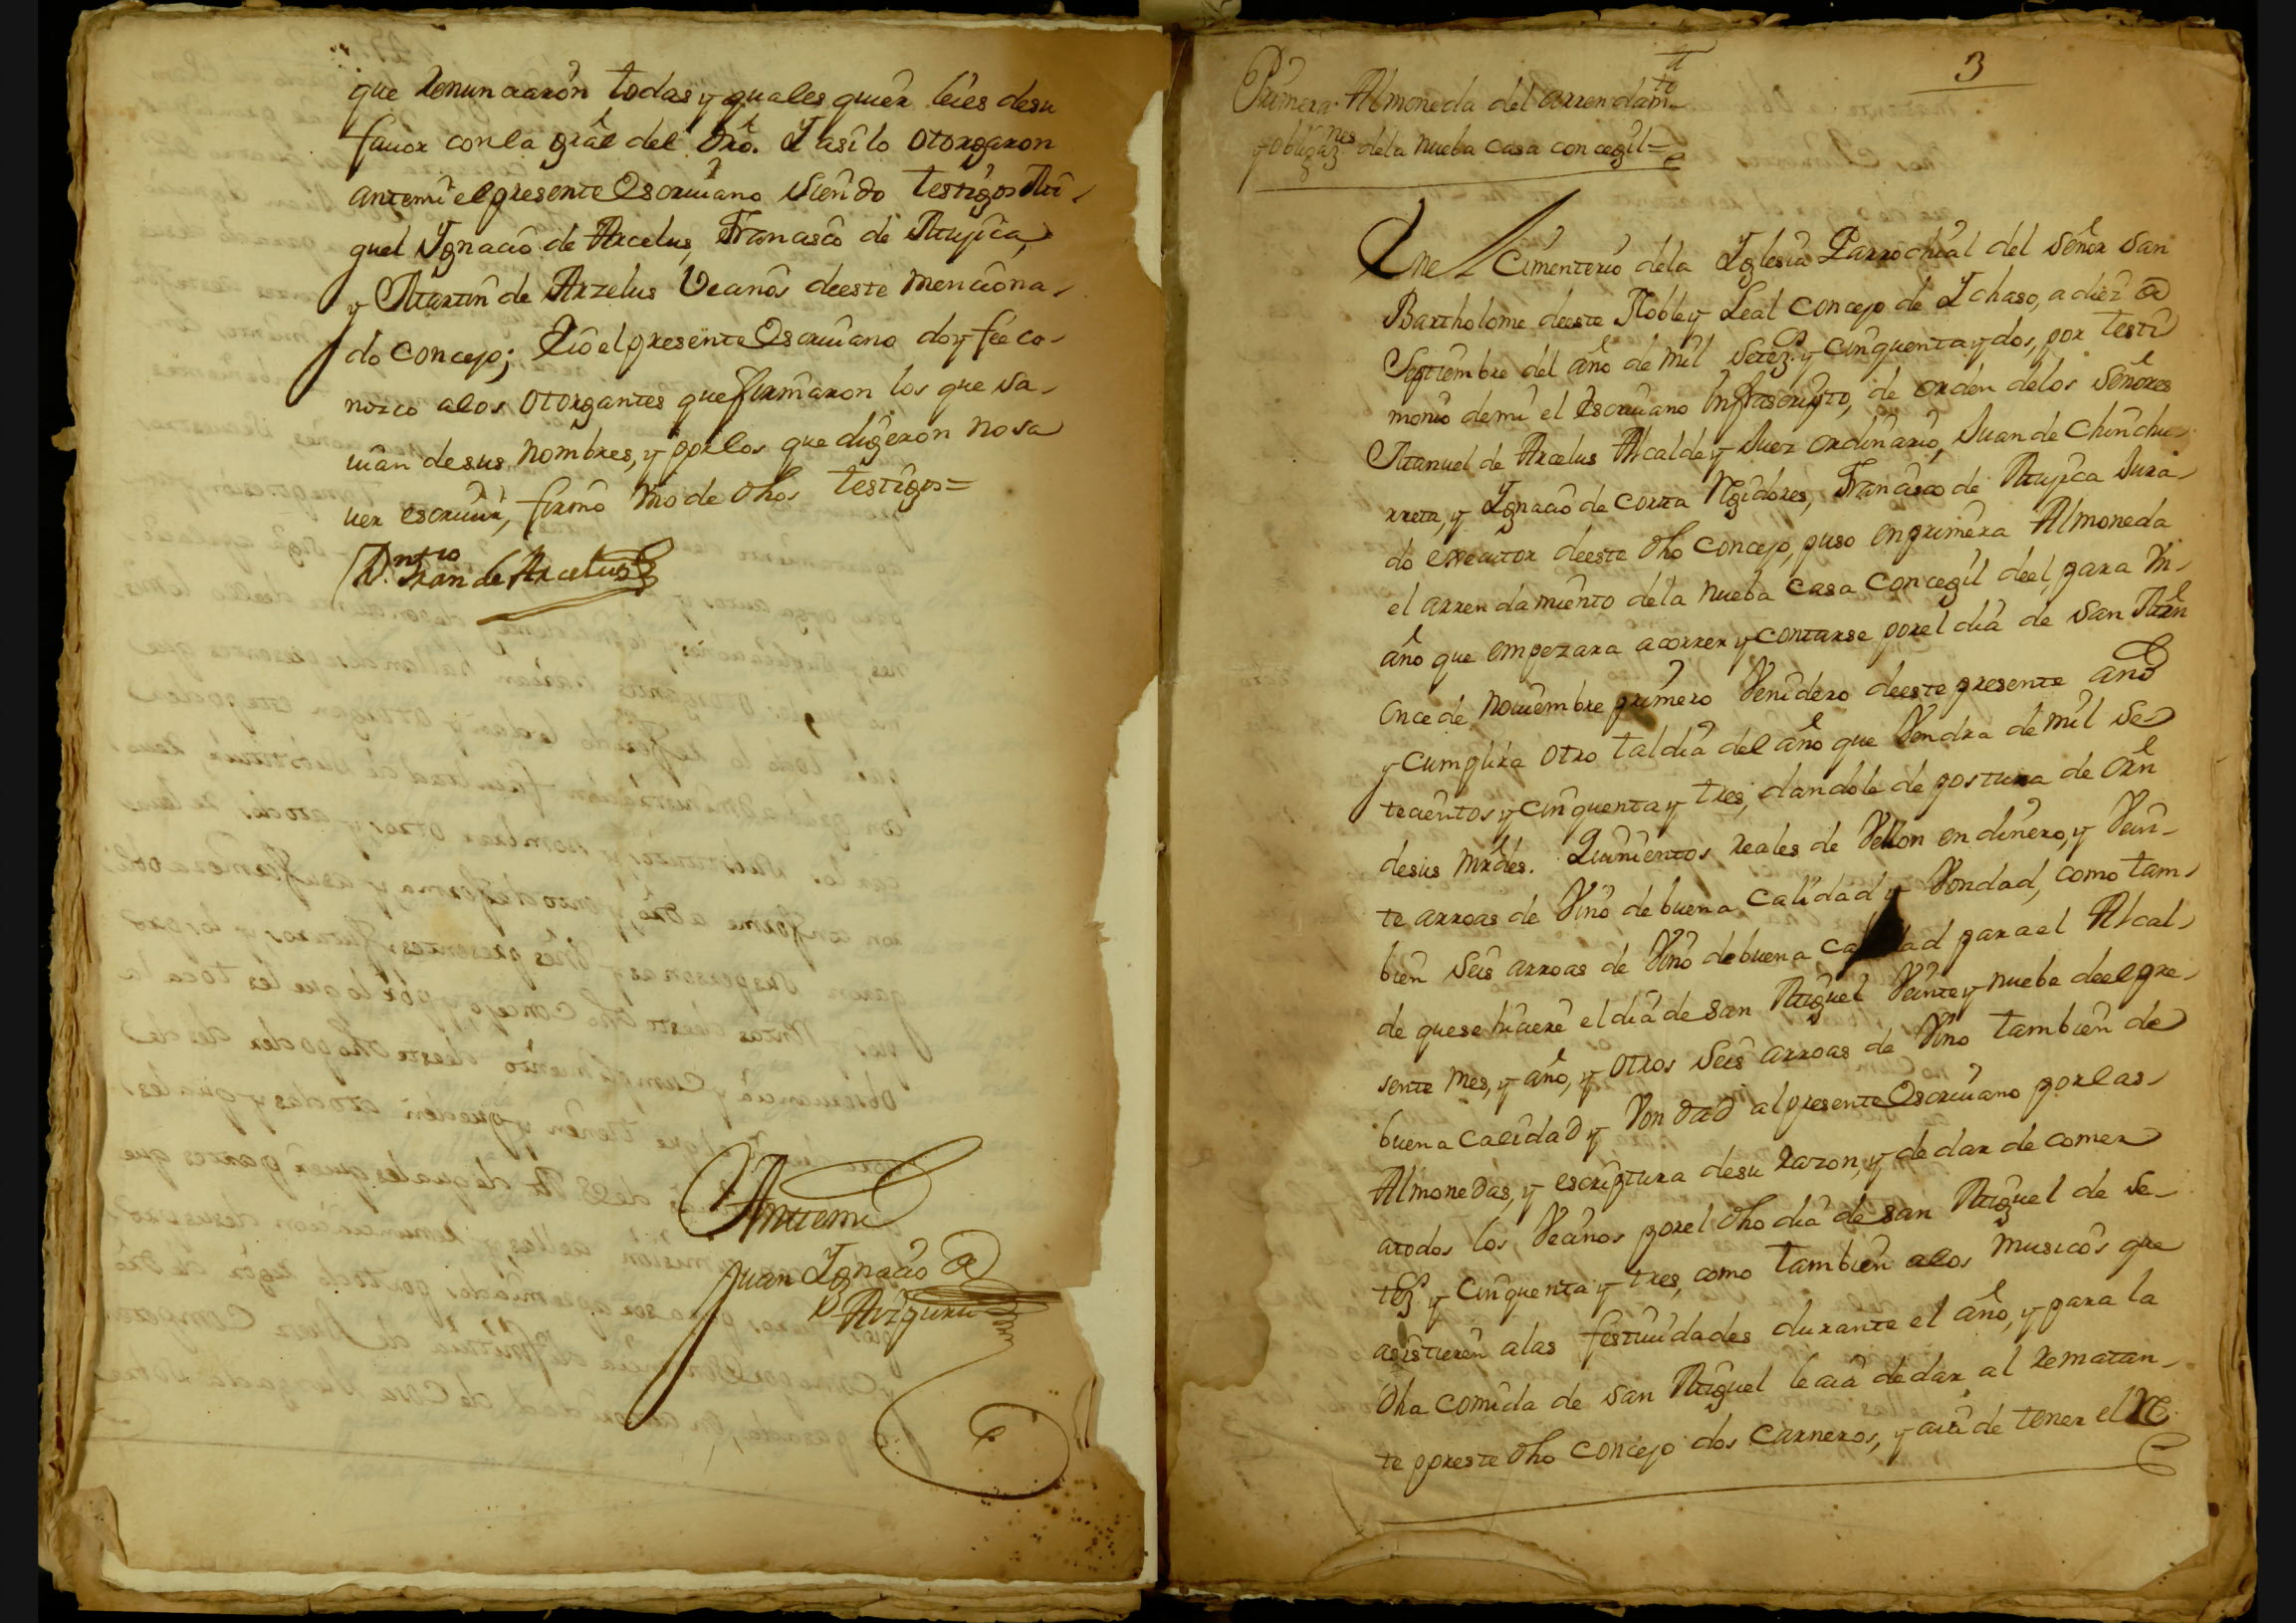 que Renunciaron todas y quales quier leies desu
fauor con la gral del dro. Y asi lo otorgaron
antemi el presente Escriuano siendo testigos Mi-
guel Ygnacio de Arcelus, Francisco de Mujica,
y Martin de Arzelus Vecinos deeste menciona-
do concejo; E io el presente Escriuano doy fee co-
nozco alos otorgantes que firmaron los que sa-
uian desus nombres, y por los que digeron no sa
uer escriuir, firmo vno de dhos testigos=
Fran de Arcelus
Antemi
Juan Ygnacio de
Aizpuru
3
Primera Almoneda del arrendamto
y obligaznes dela nueba casa concegil=
Enel Cimenterio dela Yglesia Parrochial del señor san
Bartholome deeste Noble y Leal concejo de Ychaso, a diez de
Septiembre del año de mil setezs y cinquenta y dos, por testi
monio demi el Escriuano Infrascripto, de orden delos señores
Manuel de Arcelus Alcalde y Juez ordinario, Juan de Chinchu-
rreta, y Ygnacio de Corta Rgidores, Francisco de Mujica Jura-
do executor deeste dho concejo, puso en primera Almoneda
el arrendamiento dela nueba casa concegil deel, para vn
año que empezara acorrer y contarse por el dia de san Mrn
once de nouiembre primero Venidero deeste presente año
y cumplira otro tal dia del año que Vendra de mil se
tecientos y cinquenta y tres, dandole de postura de orn
desus Mrdes. Quinientos reales de Vellon en dinero, y Vein-
te arroas de Vino de buena calidad y Vondad, como tam-
bien seis arroas de Vino de buena calidad para el Alcal-
de que se hiciere el dia de san Miguel Veinte y nuebe deel pre-
sente mes, y año, y otros seis arroas de Vino tambien de
buena calidad y Vondad al presente Escriuano por las
Almonedas, y escriptura desu razon, y de dar de comer
atodos los Vecinos por el dho dia de san Miguel de se-
tezs y cinquenta y tres, como tambien alos musicos que
asistieren alas festiuidades durante el año, y para la
dha comida de san Miguel le aia de dar al rematan-
te por este dho concejo dos carneros, y aia de tener el Re